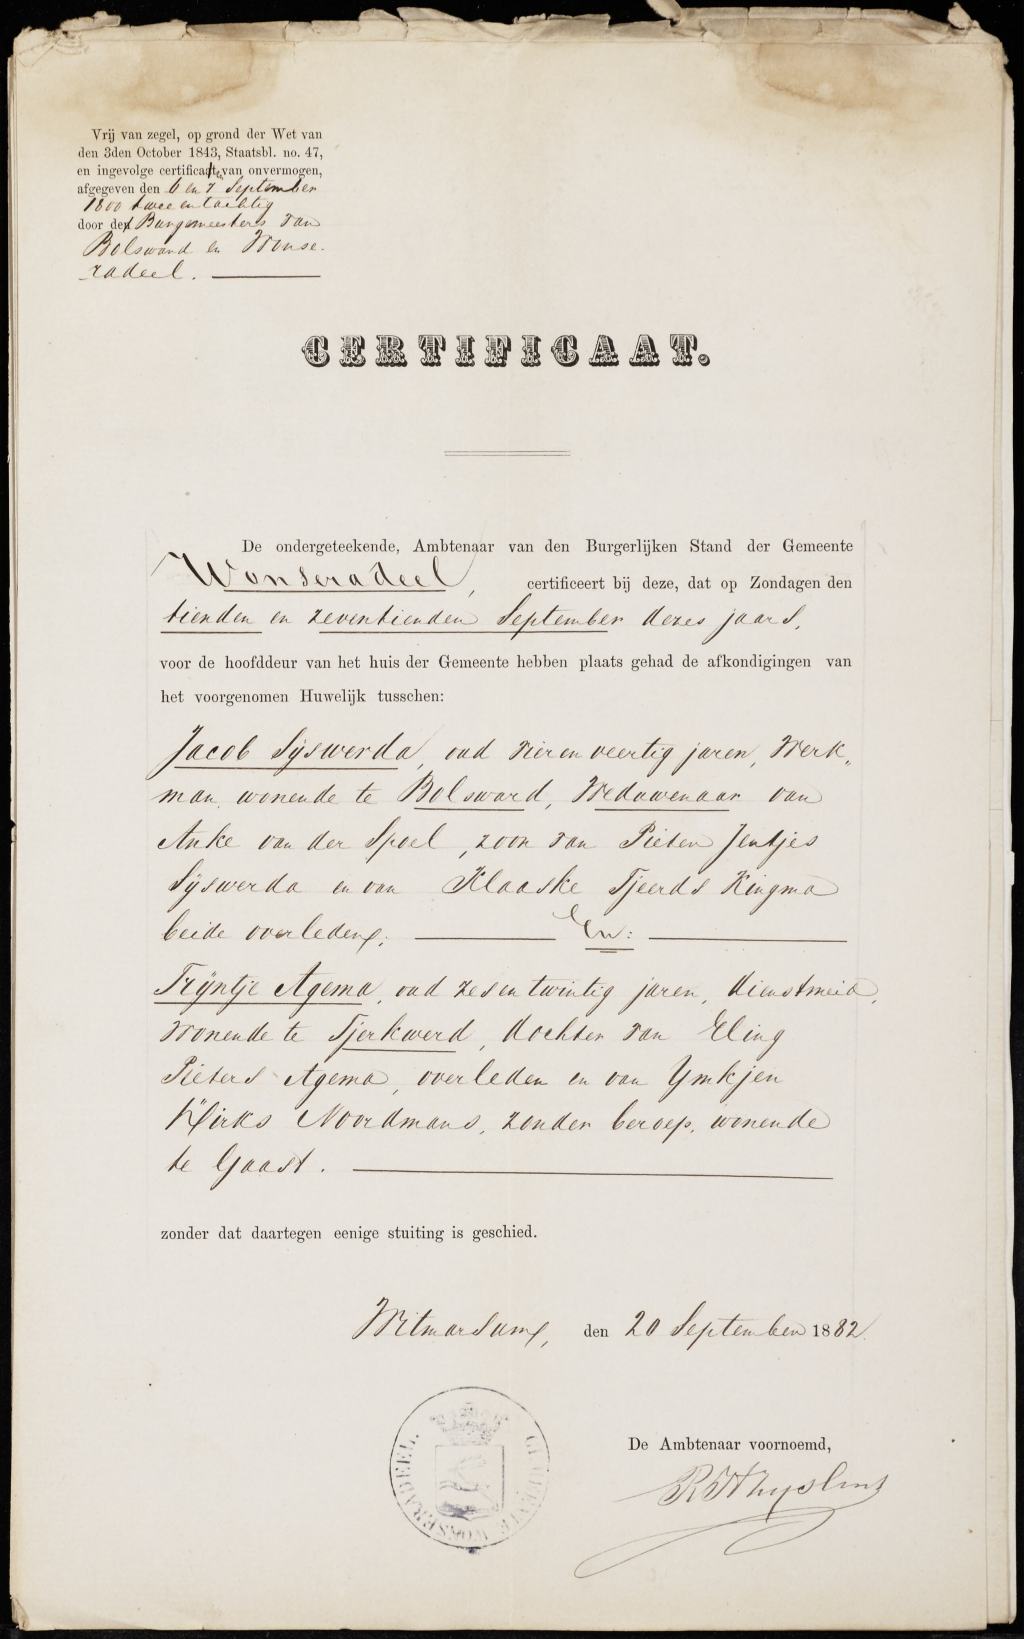 Vrij van zegel, op grond der Wet van
den 3den October 1843, Staatsbl. no. 47,
en ingevolge certificaten van onvermogen,
afgegeven den 6 en 7 September
1800 twee en tachtig
door den Burgemeesters van
Bolsward en Wonse-
radeel.
CERTIFICAAT.
De ondergeteekende, Ambtenaar van den Burgerlijken Stand der Gemeente
Wonseradeel, certificeert bij deze, dat op Zondagen den
tienden en zeventienden September dezes jaars,
voor de hoofddeur van het huis der Gemeente hebben plaats gehad de afkondigingen van
het voorgenomen Huwelijk tusschen:
Jacob Sijswerda, oud vier en veertig jaren, Werk-
man, wonende te Bolsward, Weduwenaar van
Anke van der Spoel, zoon van Pieter Jentjes
Sijswerda en van Klaaske Tjeerds Kingma
beide overleden; En:
Trijntje Agema, oud zes en twintig jaren, dienstmeid,
wonende te Tjerkwerd, dochter van Eling
Pieters Agema, overleden en van Ymkjen
Dirks Noordmans, zonder beroep, wonende
te Gaast.
zonder dat daartegen eenige stuiting is geschied.
Witmarsum, den 20 September 1882.
De Ambtenaar voornoemd,
GEMEENTE WONSERADEEL.